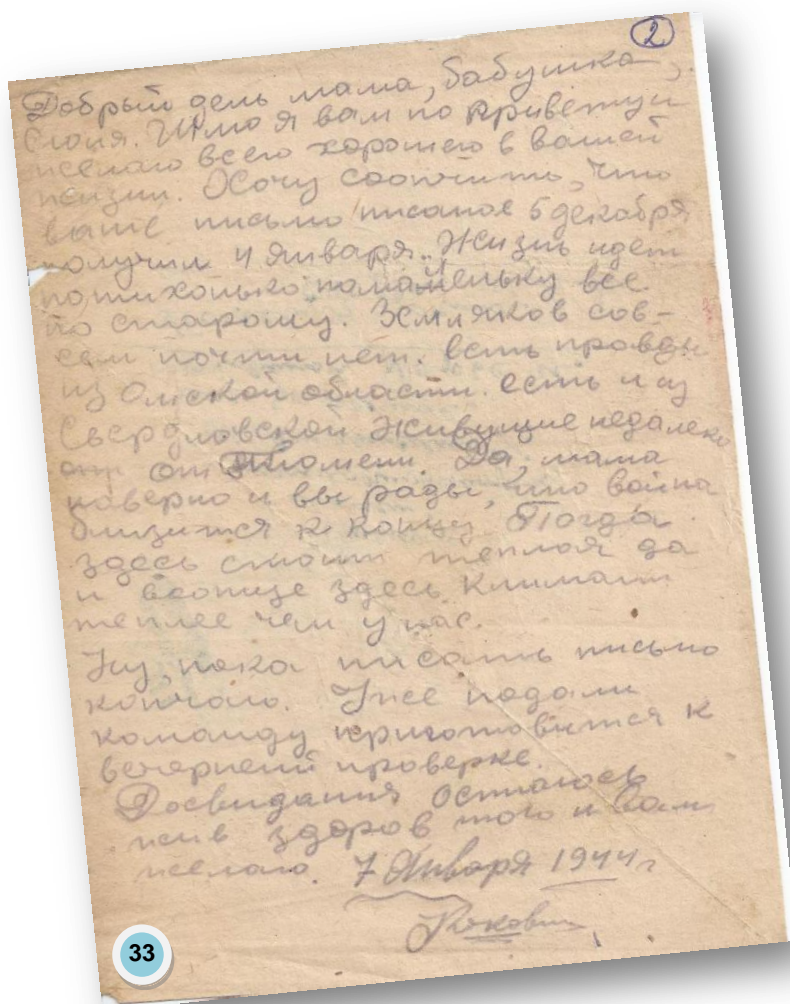 2
Добрый день мама, бабушка,
Шлю я вам по привету и
желаю всего хорошего в вашей
жизни. Хочу сообчить, что
ваше письмо писаное 5 декабря
получил 4 января. Жизнь идет
потихоньку помаленьку все
по старому. Земляков сов-
сем почти нет. Есть правда
из Омской области есть и из
Свердловской живущие недалеко
от Тюмени. Да, мама
наверно и вы рады, что война
близится к концу. Погода
здесь стоит теплая да
и вообще здесь климат
теплее чем у нас.
Ну, пока писать письмо
кончаю. Уже подали
команду приготовится к
вечерней проверке.
Досвидания остаюсь
жив здоров того и вам
желаю. 7 Января 1944 г
33